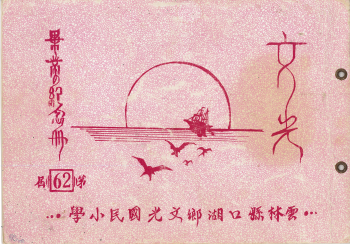 文光
畢業紀念冊
第62屆
雲林縣口湖鄉文光國民小學